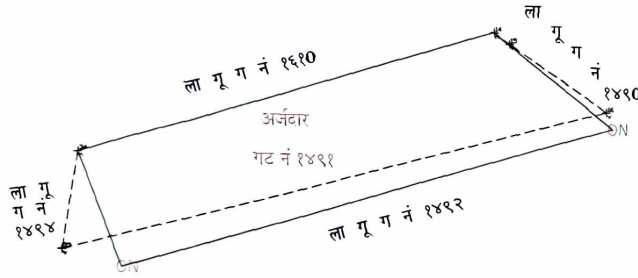 ला गू ग नं १६१०
ला गू ग नं १४९०
अर्जदार
गट नं १४९१
ला गू
ग नं
१४९४
ला गू ग नं १४९२
ON
ON